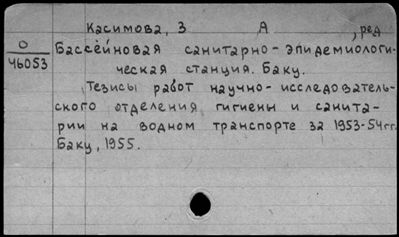 Касимова, З А , ред
О
46053
Бассейновая санитарно-эпидемиологи-
ческая станция. Баку.
Тезисы работ научно-исследователь-
ского отделения гигиены и санита-
рии на водном транспорте за 1953-54гг.
Баку, 1955.